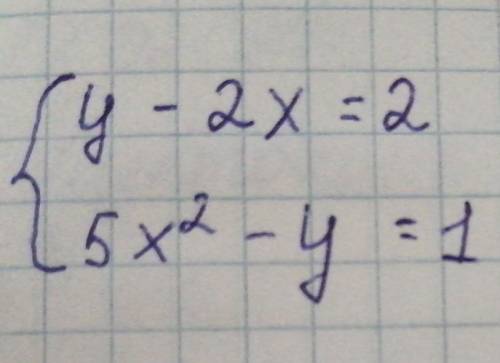 y - 2x = 2
5x² - y = 1